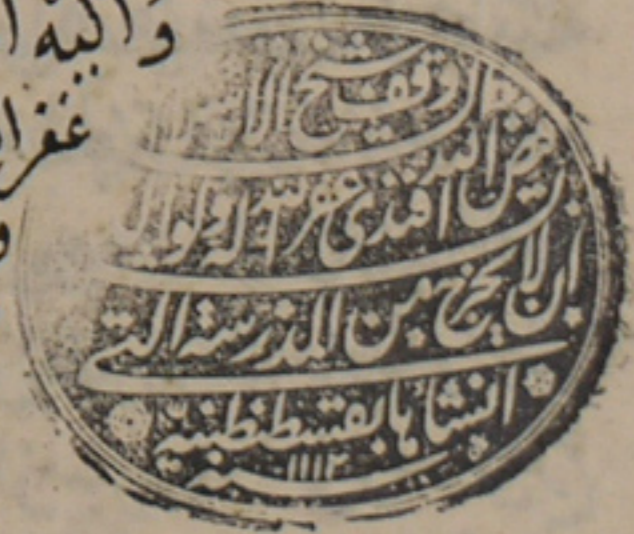 واليه
غفر
وقف شيخ الاسلا
فيض الله افندى غفر الله له ولوال
ان لا يخرج من المدرسة التى
انشأها بقسطنطينية
سنة ١١١٢